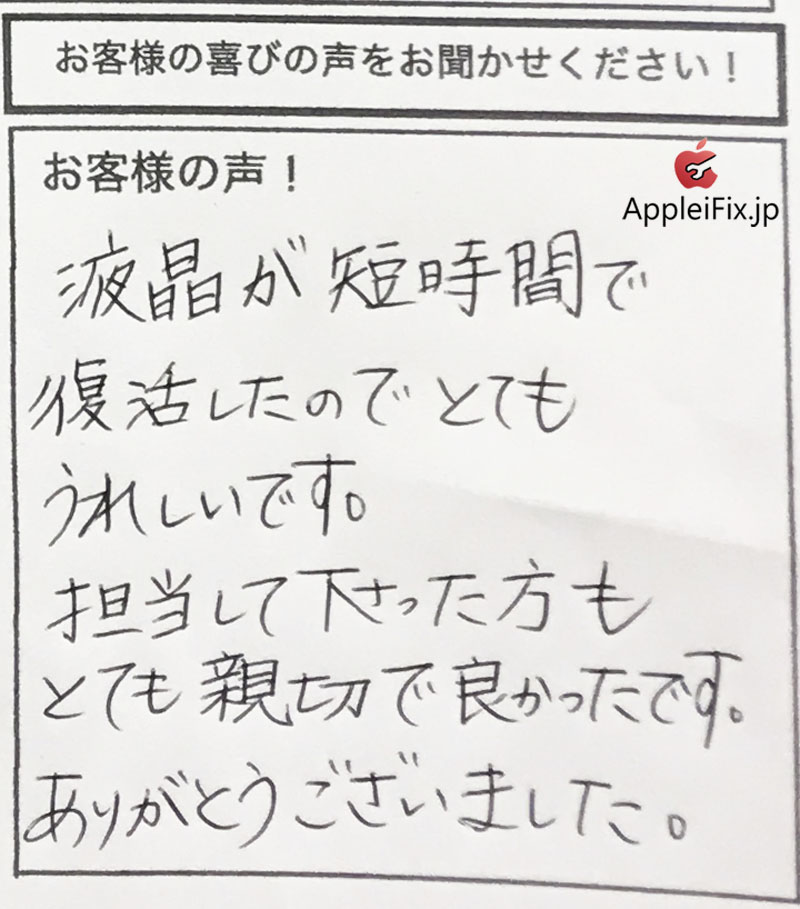 お客様の喜びの声をお聞かせください！
お客様の声！
AppleiFix.jp
液晶が短時間で
復活したのでとても
うれしいです。
担当して下さった方も
とても親切で良かったです。
ありがとうございました。